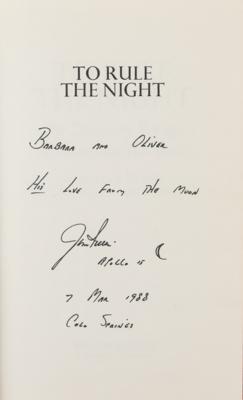 TO RULE
THE NIGHT
BARBARA AND OLIVER
HIS LOVE FROM THE MOON
Jim Irwin
APOLLO 15
7 MAR 1988
COLO SPRINGS